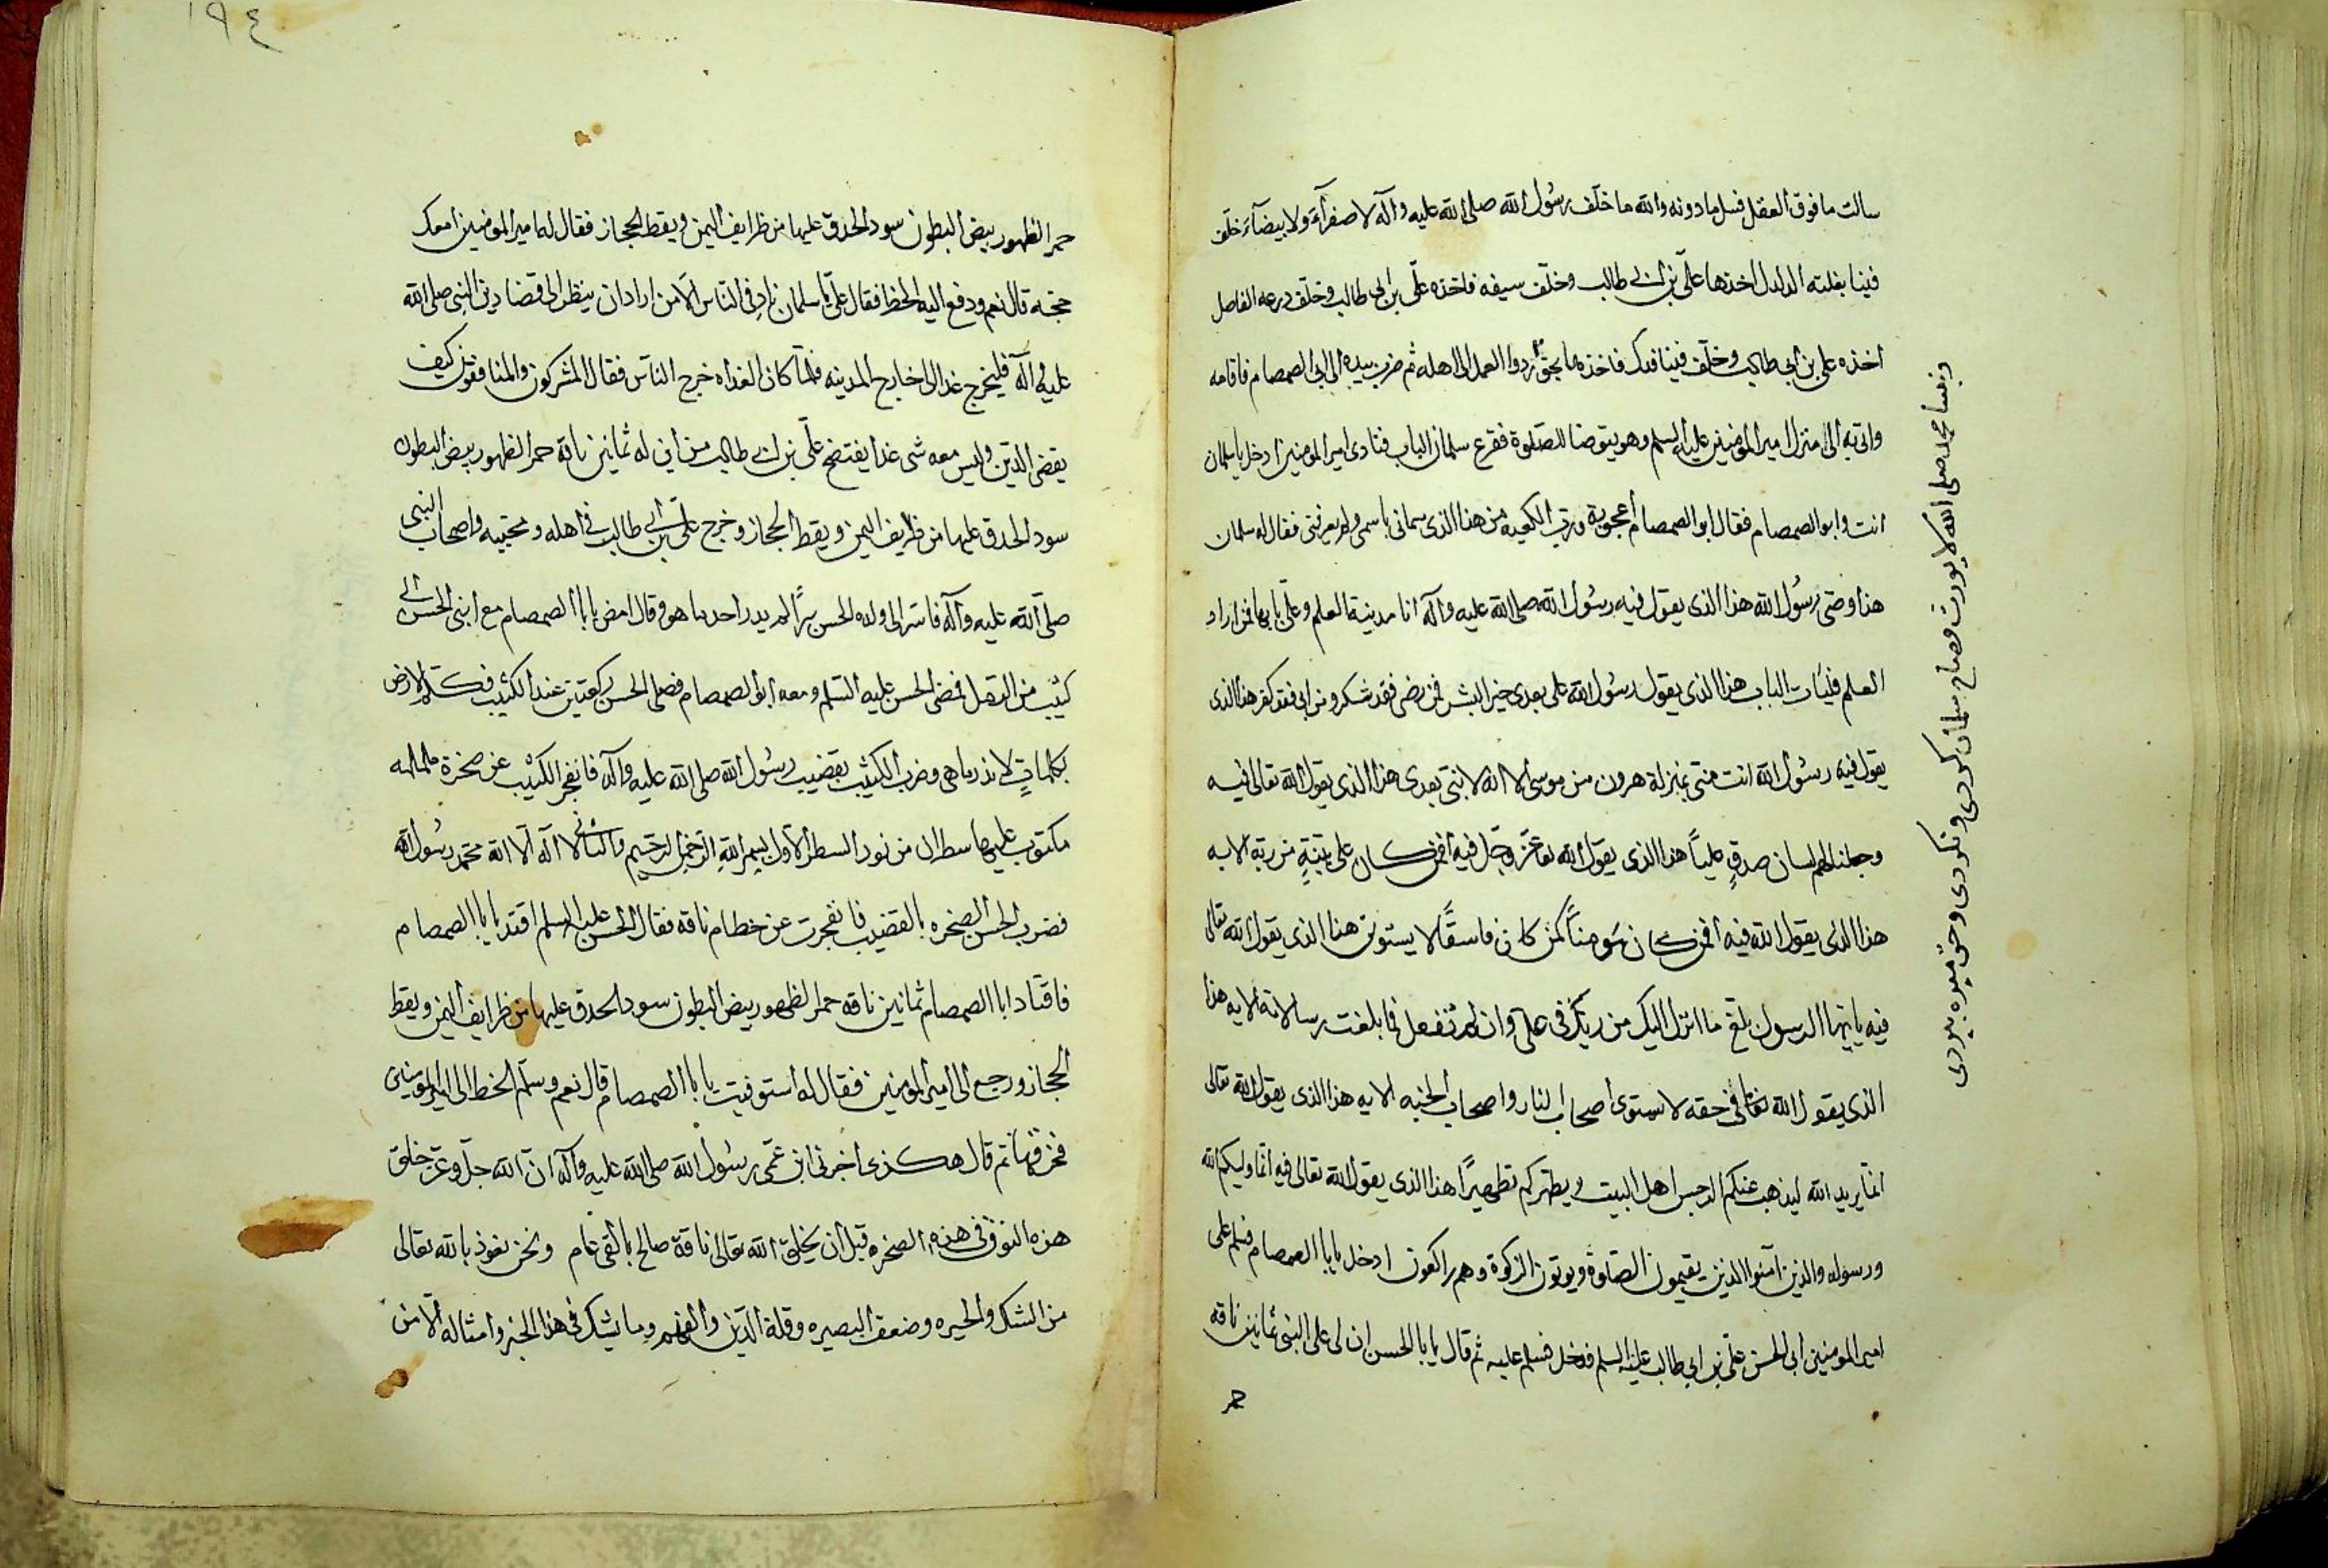 سالت ما فوق العقل فسل ما دونه والله ما خلف رسول الله صلى الله عليه وآله لا صفرآء ولا بيضآء خلف
فينا بغلته الدلدل اخذها علي بن ابي طالب وخلف سيفه فاخذه علي بن ابي طالب وخلف درعه الفاصل
اخذه علي بن ابي طالب وخلف فينا فدك فاخذها بحق ردوا العمل الى اهله ثم ضرب بيده الى ابي الصمصام فاقامه
واتي به الى منزل امير المؤمنين عليه السلم وهو يتوضا للصلوة فقرع سلمان الباب فنادى امير المؤمنين ادخل يا سلمان
انت وابو الصمصام فقال ابو الصمصام أعجوبة ورب الكعبة من هذا الذى سمانى باسمى ولم يعرفنى فقال له سلمان
هذا وصي رسول الله هذا الذى يقول فيه رسول الله صلى الله عليه وآله انا مدينة العلم وعلي بابها فمن اراد
العلم فليأت الباب هذا الذى يقول رسول الله على بعدى خير البشر فمن رضى فقد شكر ومن ابى فقد كفر هذا الذى
يقول فيه رسول الله انت منى بمنزلة هرون من موسى الا انه لا نبى بعدى هذا الذى يقول الله تعالى فيه
وجعلنا لهم لسان صدق عليا هذا الذى يقول الله عز وجل فيه افمن كان على بينة من ربه الايه
هذا الذى يقول الله فيه افمن كان مومنا كمن كان فاسقا لا يستون هذا الذى يقول الله تعالى
فيه يا ايها الرسول بلغ ما انزل اليك من ربك فى على وان لم تفعل فما بلغت رسالاته الايه هذا
الذى يقول الله تعالى فى حقه لا يستوى أصحاب النار واصحاب الجنه الايه هذا الذى يقول الله تعالى
انما يريد الله ليذهب عنكم الرجس اهل البيت ويطهركم تطهيرا هذا الذى يقول الله تعالى فيه انما وليكم الله
ورسوله والذين آمنوا الذين يقيمون الصلوة ويوتون الزكوة وهم راكعون ادخل يا ابا الصمصام فسلم على
امير المومنين ابى الحسن على بن ابي طالب عليه السلم فدخل فسلم عليه ثم قال يا با الحسن ان لى على النبى ثمانين ناقه
حمر
حمر الظهور بيض البطون سود الحدق عليها من ظرايف اليمن ونقط الحجاز فقال له امير المؤمنين أمعك
حجة قال نعم ودفع اليه الخط فقال على يا سلمان ناد فى الناس الا من اراد ان ينظر الى قضا دين النبى صلى الله
عليه وآله فليخرج غدا الى خارج المدينه فلما كان الغداه خرج الناس فقال المشركون والمنافقون كيف
يقضى الدين وليس معه شى غدا يفتضح على بن ابي طالب من اين له ثمانين ناقة حمر الظهور بيض البطون
سود الحدق عليها من ظرايف اليمن ونقط الحجاز وخرج على بن ابي طالب فى اهله ومحبيه واصحاب النبى
صلى الله عليه وآله فاسر الى ولده الحسن سرا لم يدر احد ما هو وقال امض يا ابا الصمصام مع ابنى الحسن الى
كثيب من الرمل فمضى الحسن عليه السلم ومعه ابو الصمصام فصلى الحسن ركعتين عند الكثيب فكلم الارض
بكلمات لا ندرى ما هى وضرب الكثيب بقضيب رسول الله صلى الله عليه وآله فانفجر الكثيب عن صخرة ململمه
مكتوب عليها سطران من نور السطر الاول بسم الله الرحمن الرحيم والثانى لا اله الا الله محمد رسول الله
فضرب الحسن الصخره بالقضيب فانفجرت عن خطام ناقه فقال الحسن عليه السلم اقتد يا با الصمصام
فاقتاد ابا الصمصام ثمانين ناقه حمر الظهور بيض البطون سود الحدق عليها من ظرايف اليمن ونقط
الحجاز ورجع الى امير المومنين فقال له استوفيت يا با الصمصام قال نعم وسلم الخط الى امير المؤمنين
فخرقها ثم قال هكذى اخبرنى ابن عمى رسول الله صلى الله عليه وآله ان الله جل وعز خلق
هذه النوق فى هذه الصخره قبل ان يخلق الله تعالى ناقة صالح بالفى عام ونحن نعوذ بالله تعالى
من الشك والحيره وضعف البصيره وقلة الدين والفهم وما يشك فى هذا الخبر وامثاله الا من
١٩٤